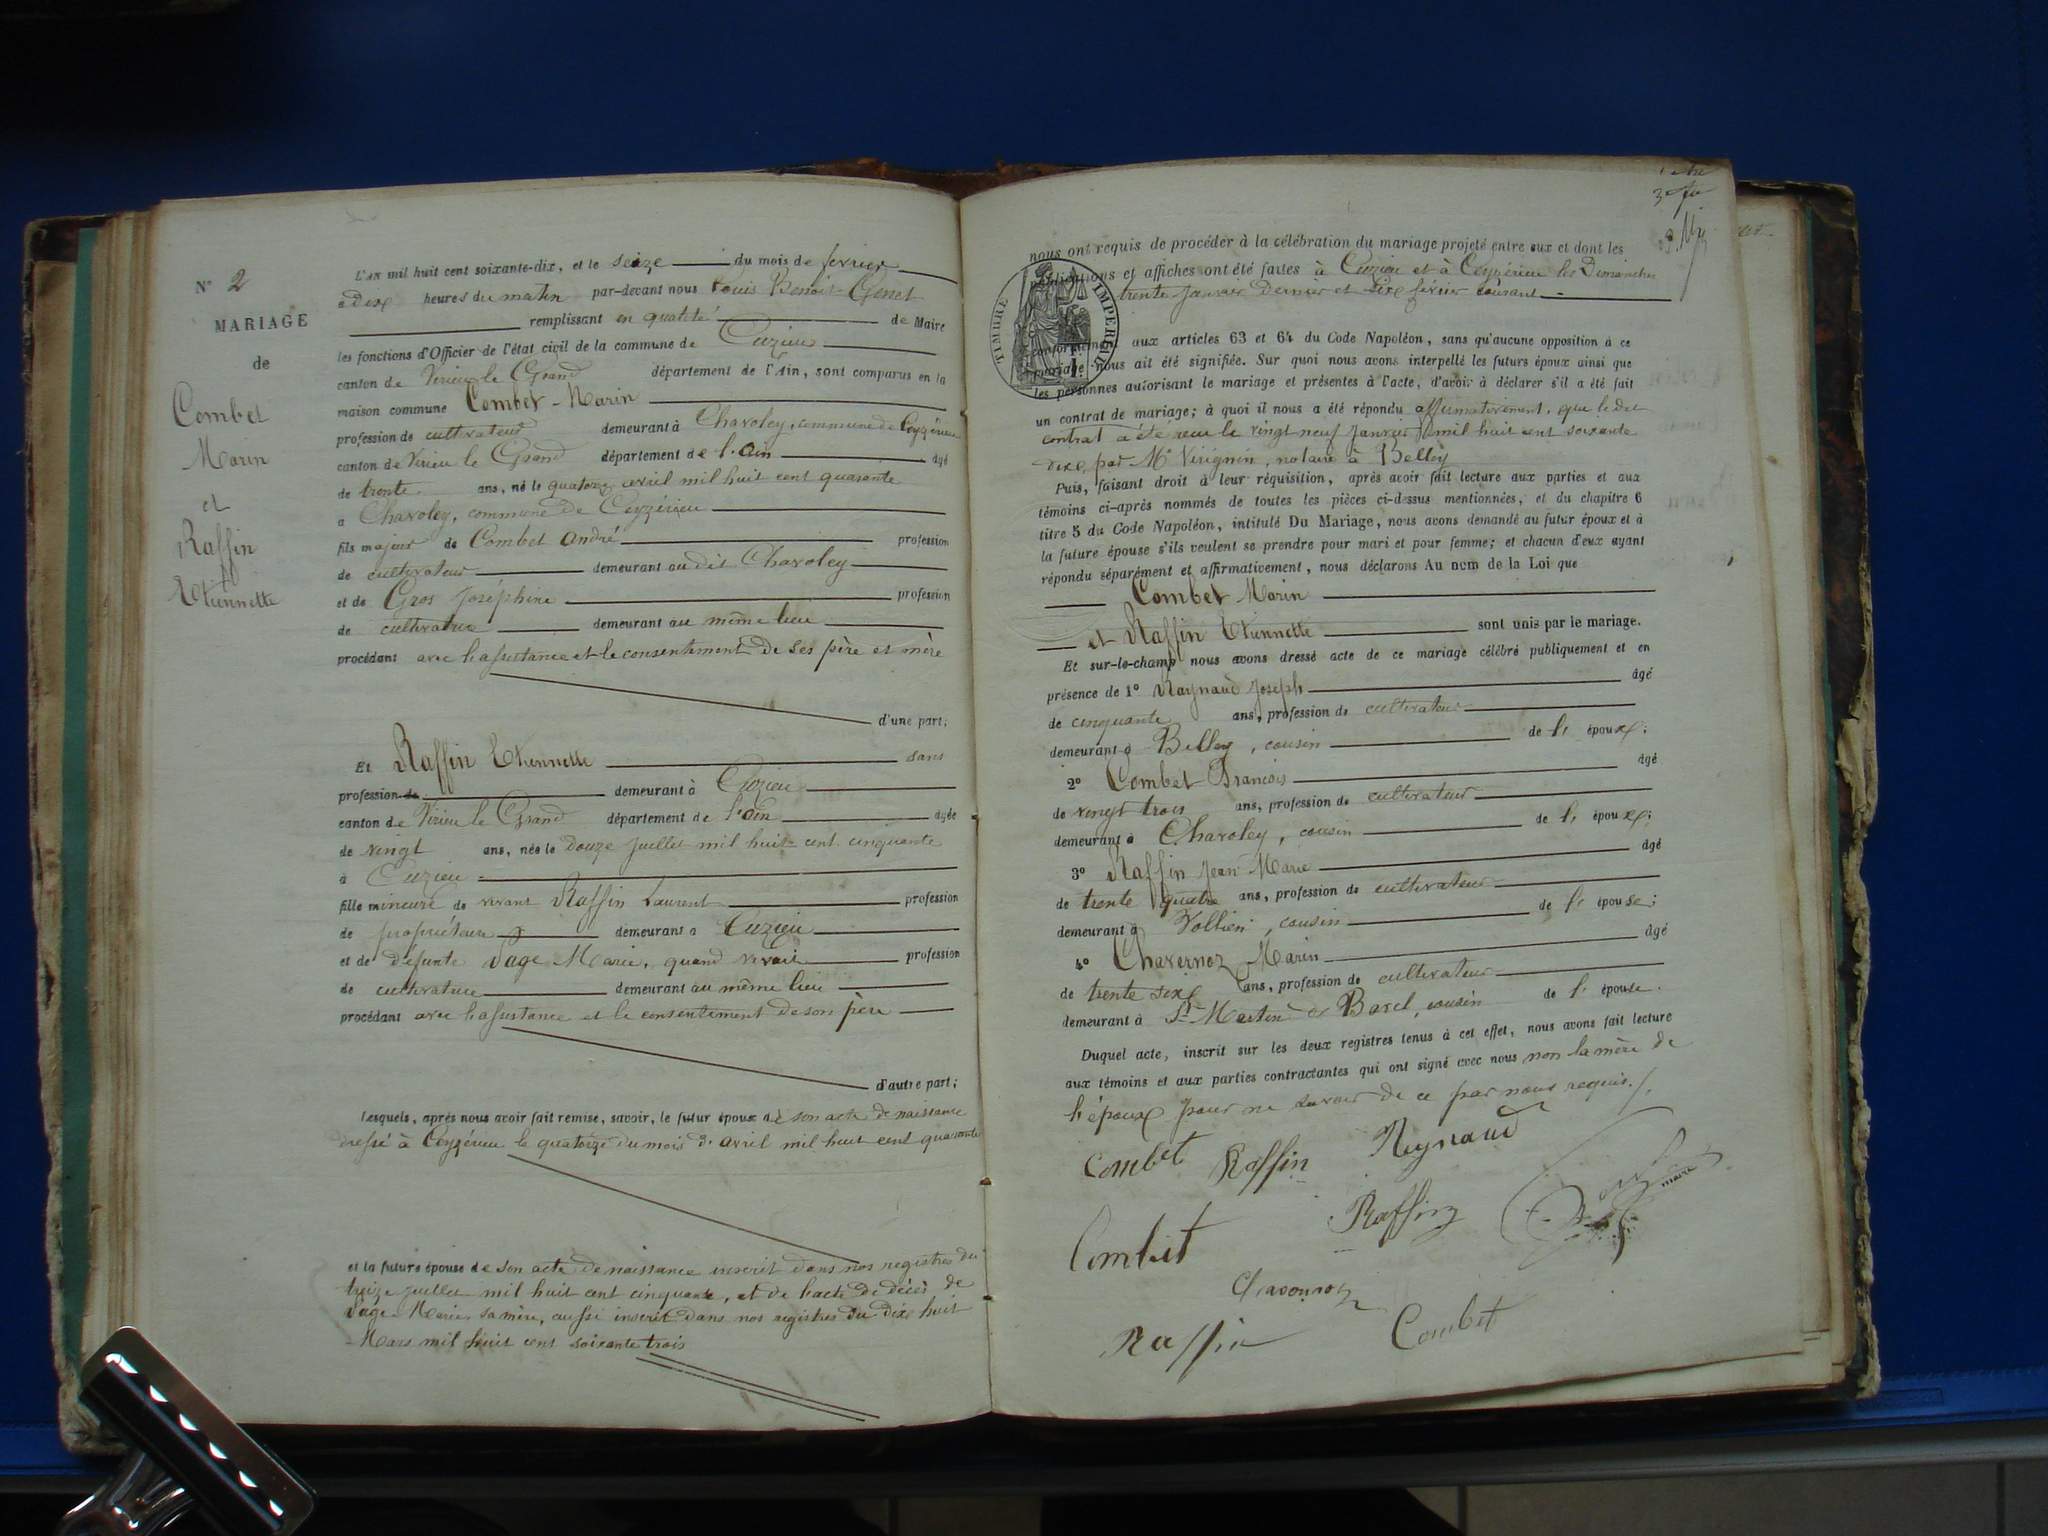 N° 2
MARIAGE
de
Combet
Marin
et
Raffin
Etiennette
L'AN mil huit cent soixante-dix, et le seize du mois de février
à dix heures du matin par-devant nous Louis Benoit Genet
remplissant en qualité de Maire
les fonctions d'Officier de l'état civil de la commune de Cuzieu
canton de Virieu le Grand département de l'Ain, sont comparus en la
maison commune Combet Marin
profession de cultivateur demeurant à Charoley, commune de Ceyzérieu
canton de Virieu le Grand département de l'Ain âgé
de trente ans, né le quatorze avril mil huit cent quarante
à Charoley, commune de Ceyzérieu
fils majeur de Combet André profession
de cultivateur demeurant audit Charoley
et de Gros Joséphine profession
de cultivatrice demeurant au même lieu
procédant avec l'assistance et le consentement de ses père et mère
d'une part;
Et Raffin Etiennette sans
profession de demeurant à Cuzieu
canton de Virieu le Grand département de l'Ain âgée
de vingt ans, née le douze juillet mil huit cent cinquante
à Cuzieu
fille mineure de vivant Raffin Laurent profession
de propriétaire demeurant à Cuzieu
et de défunte Sage Marie, quand vivait profession
de cultivatrice demeurant au même lieu
procédant avec l'assistance et le consentement de son père
d'autre part;
Lesquels, après nous avoir fait remise, savoir, le futur époux de son acte de naissance
dressé à Ceyzérieu le quatorze du mois d'avril mil huit cent quarante
et la future épouse de son acte de naissance inscrit dans nos registres du
treize juillet mil huit cent cinquante, et de l'acte de décès de
Sage Marie sa mère, aussi inscrit dans nos registres du dix huit
Mars mil huit cent soixante trois
nous ont requis de procéder à la célébration du mariage projeté entre eux et dont les
publications et affiches ont été faites à Cuzieu et à Ceyzérieu les Dimanches
trente janvier dernier et six février courant
TIMBRE IMPÉRIAL
conformément aux articles 63 et 64 du Code Napoléon, sans qu'aucune opposition à ce
mariage nous ait été signifiée. Sur quoi nous avons interpellé les futurs époux ainsi que
les personnes autorisant le mariage et présentes à l'acte, d'avoir à déclarer s'il a été fait
un contrat de mariage; à quoi il nous a été répondu affirmativement, que le dit
contrat a été reçu le vingt neuf janvier mil huit cent soixante
dix, par Me Virignin, notaire à Belley
Puis, faisant droit à leur réquisition, après avoir fait lecture aux parties et aux
témoins ci-après nommés de toutes les pièces ci-dessus mentionnées, et du chapitre 6
titre 5 du Code Napoléon, intitulé Du Mariage, nous avons demandé au futur époux et à
la future épouse s'ils veulent se prendre pour mari et pour femme; et chacun d'eux ayant
répondu séparément et affirmativement, nous déclarons Au nom de la Loi que
Combet Marin
et Raffin Etiennette sont unis par le mariage.
Et sur-le-champ nous avons dressé acte de ce mariage célébré publiquement et en
présence de 1° Raynaud Joseph âgé
de cinquante ans, profession de cultivateur
demeurant à Belley, cousin de l' époux;
2° Combet François âgé
de vingt trois ans, profession de cultivateur
demeurant à Charoley, cousin de l' époux;
3° Raffin Jean Marie âgé
de trente quatre ans, profession de cultivateur
demeurant à Vollien, cousin de l' épouse;
4° Chavernoz Marin âgé
de trente six ans, profession de cultivateur
demeurant à St Martin de Bavel, cousin de l' épouse.
Duquel acte, inscrit sur les deux registres tenus à cet effet, nous avons fait lecture
aux témoins et aux parties contractantes qui ont signé avec nous non la mère de
l'époux pour ne savoir de ce par nous requis.
Combet Raffin Reynaud
Combet Raffin maire
Chavonoz
Raffin Combet